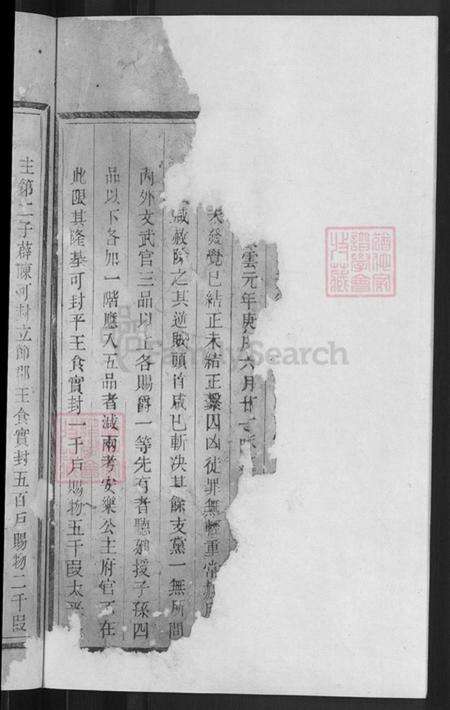 雲元年庚戌六月廿
發覺已結正未結正繫囚囚徒罪無輕重常
赦除之其逆賊頭首咸已斬决其餘支黨一無所問
內外文武官三品以上各賜爵一等先有者聽廻授子孫四
品以下各加一階應入五品者減兩考安樂公主府官不在
此限其隆基可封平王食實封一千戶賜物五千段太平
主第二子薛崇可封立節郡王食實封五百戶賜物二千段
FamilySearch